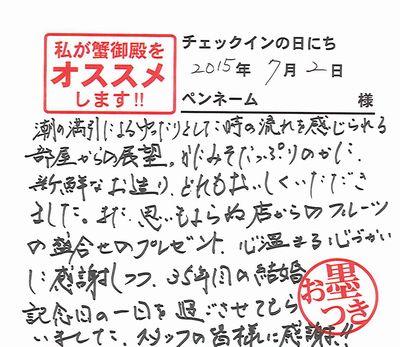 私が蟹御殿を
オススメ
します!!
チェックインの日にち
2015年 7月 2日
ペンネーム 様
潮の満引によるゆったりとした時の流れを感じられる
部屋からの展望。かにみそたっぷりのかに、
新鮮なお造り、どれもおいしくいただき
ました。また、思いもよらぬ店からのフルーツ
の盛合せのプレゼント、心温まる心づかい
に感謝しつつ、35年目の結婚
記念日の一日を過ごさせてもら
いました。スタッフの皆様に感謝!!
お墨つき